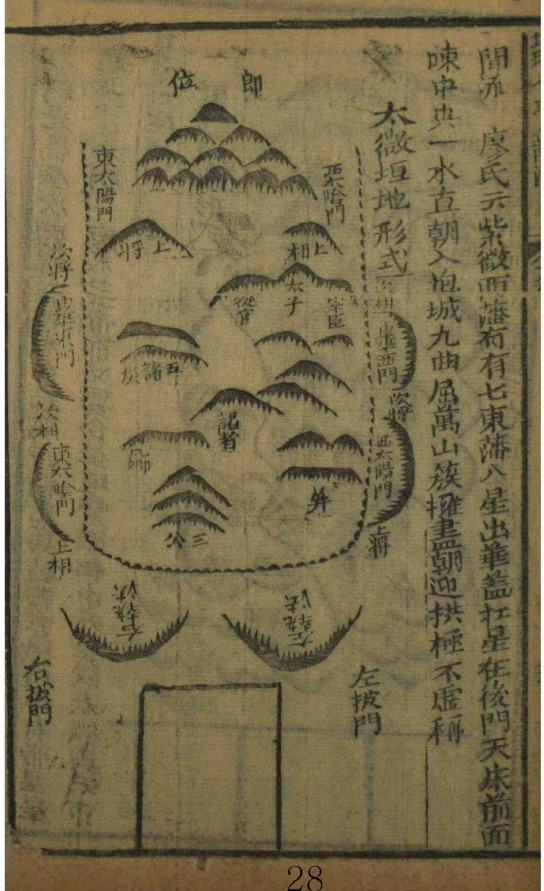 閒派 廖氏云紫微西藩有七東藩八星出華盖杠星在後門天床前面
陳中央一水直朝入垣城九曲屈萬山簇擁盡朝迎拱極不虛稱
太微垣地形式
郎位
西太陰門
東太陽門
上相
上將
太子
從官
幸臣
次相
西華門
次將
東華東門
次將
五諸侯
謁者
西太陽門
次相
東太陰門
九卿
屏
三公
上將
上相
左執法
右執法
左掖門
右掖門
28